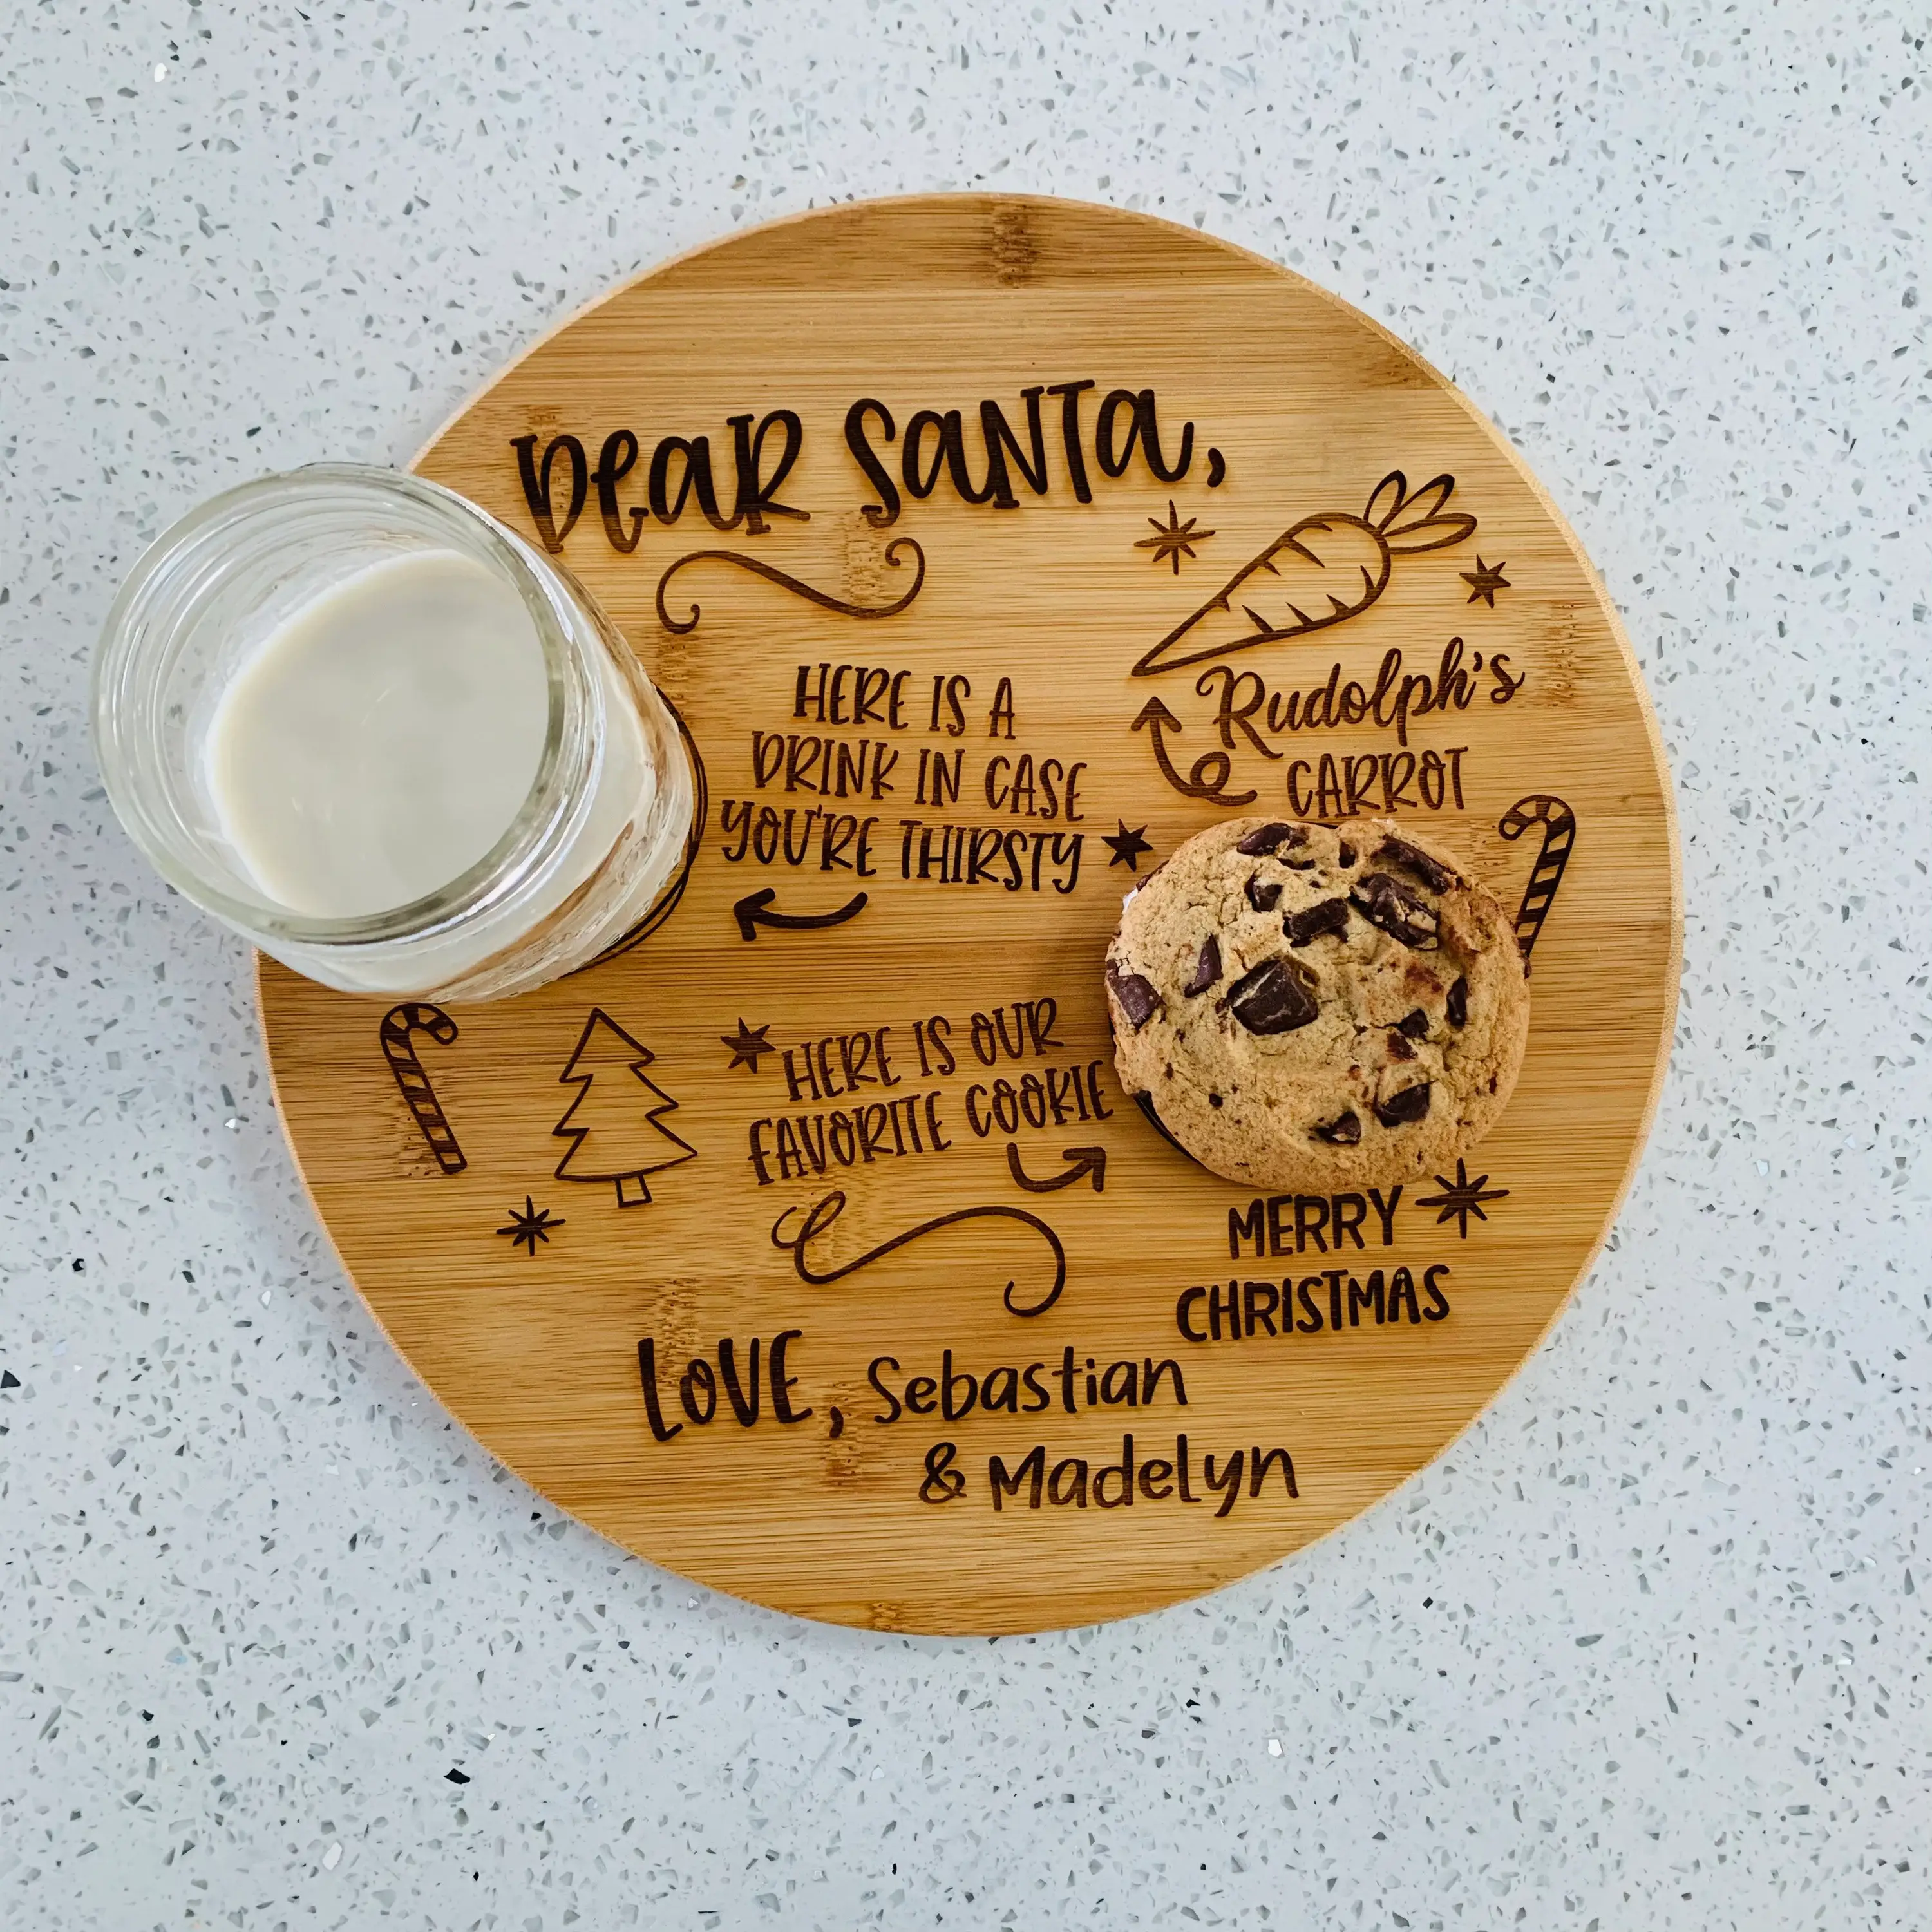 Dear Santa,
HERE IS A
DRINK IN CASE
YOU'RE THIRSTY
Rudolph's
CARROT
HERE IS OUR
FAVORITE COOKIE
MERRY
CHRISTMAS
LOVE, Sebastian
& Madelyn